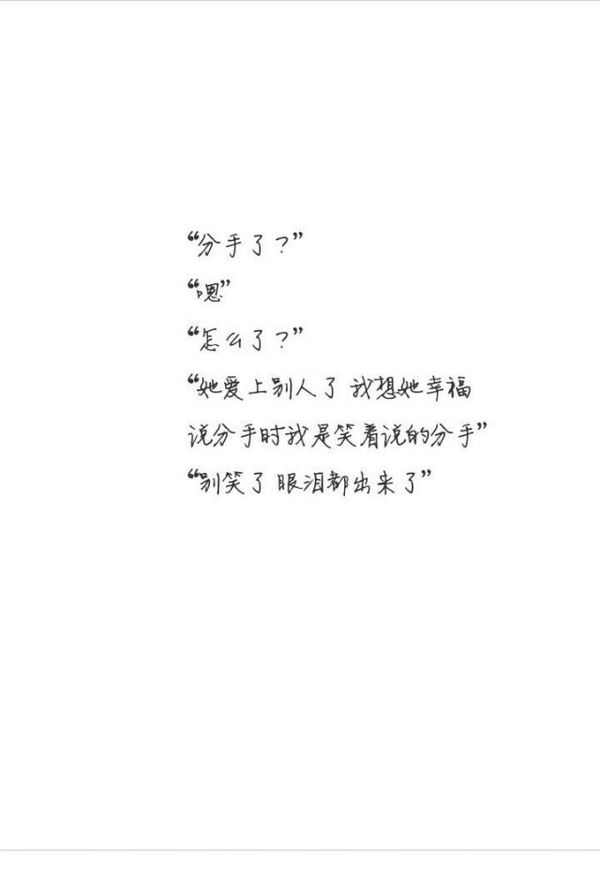 “分手了？”
“嗯”
“怎么了？”
“她爱上别人了 我想她幸福
说分手时我是笑着说的分手”
“别笑了 眼泪都出来了”